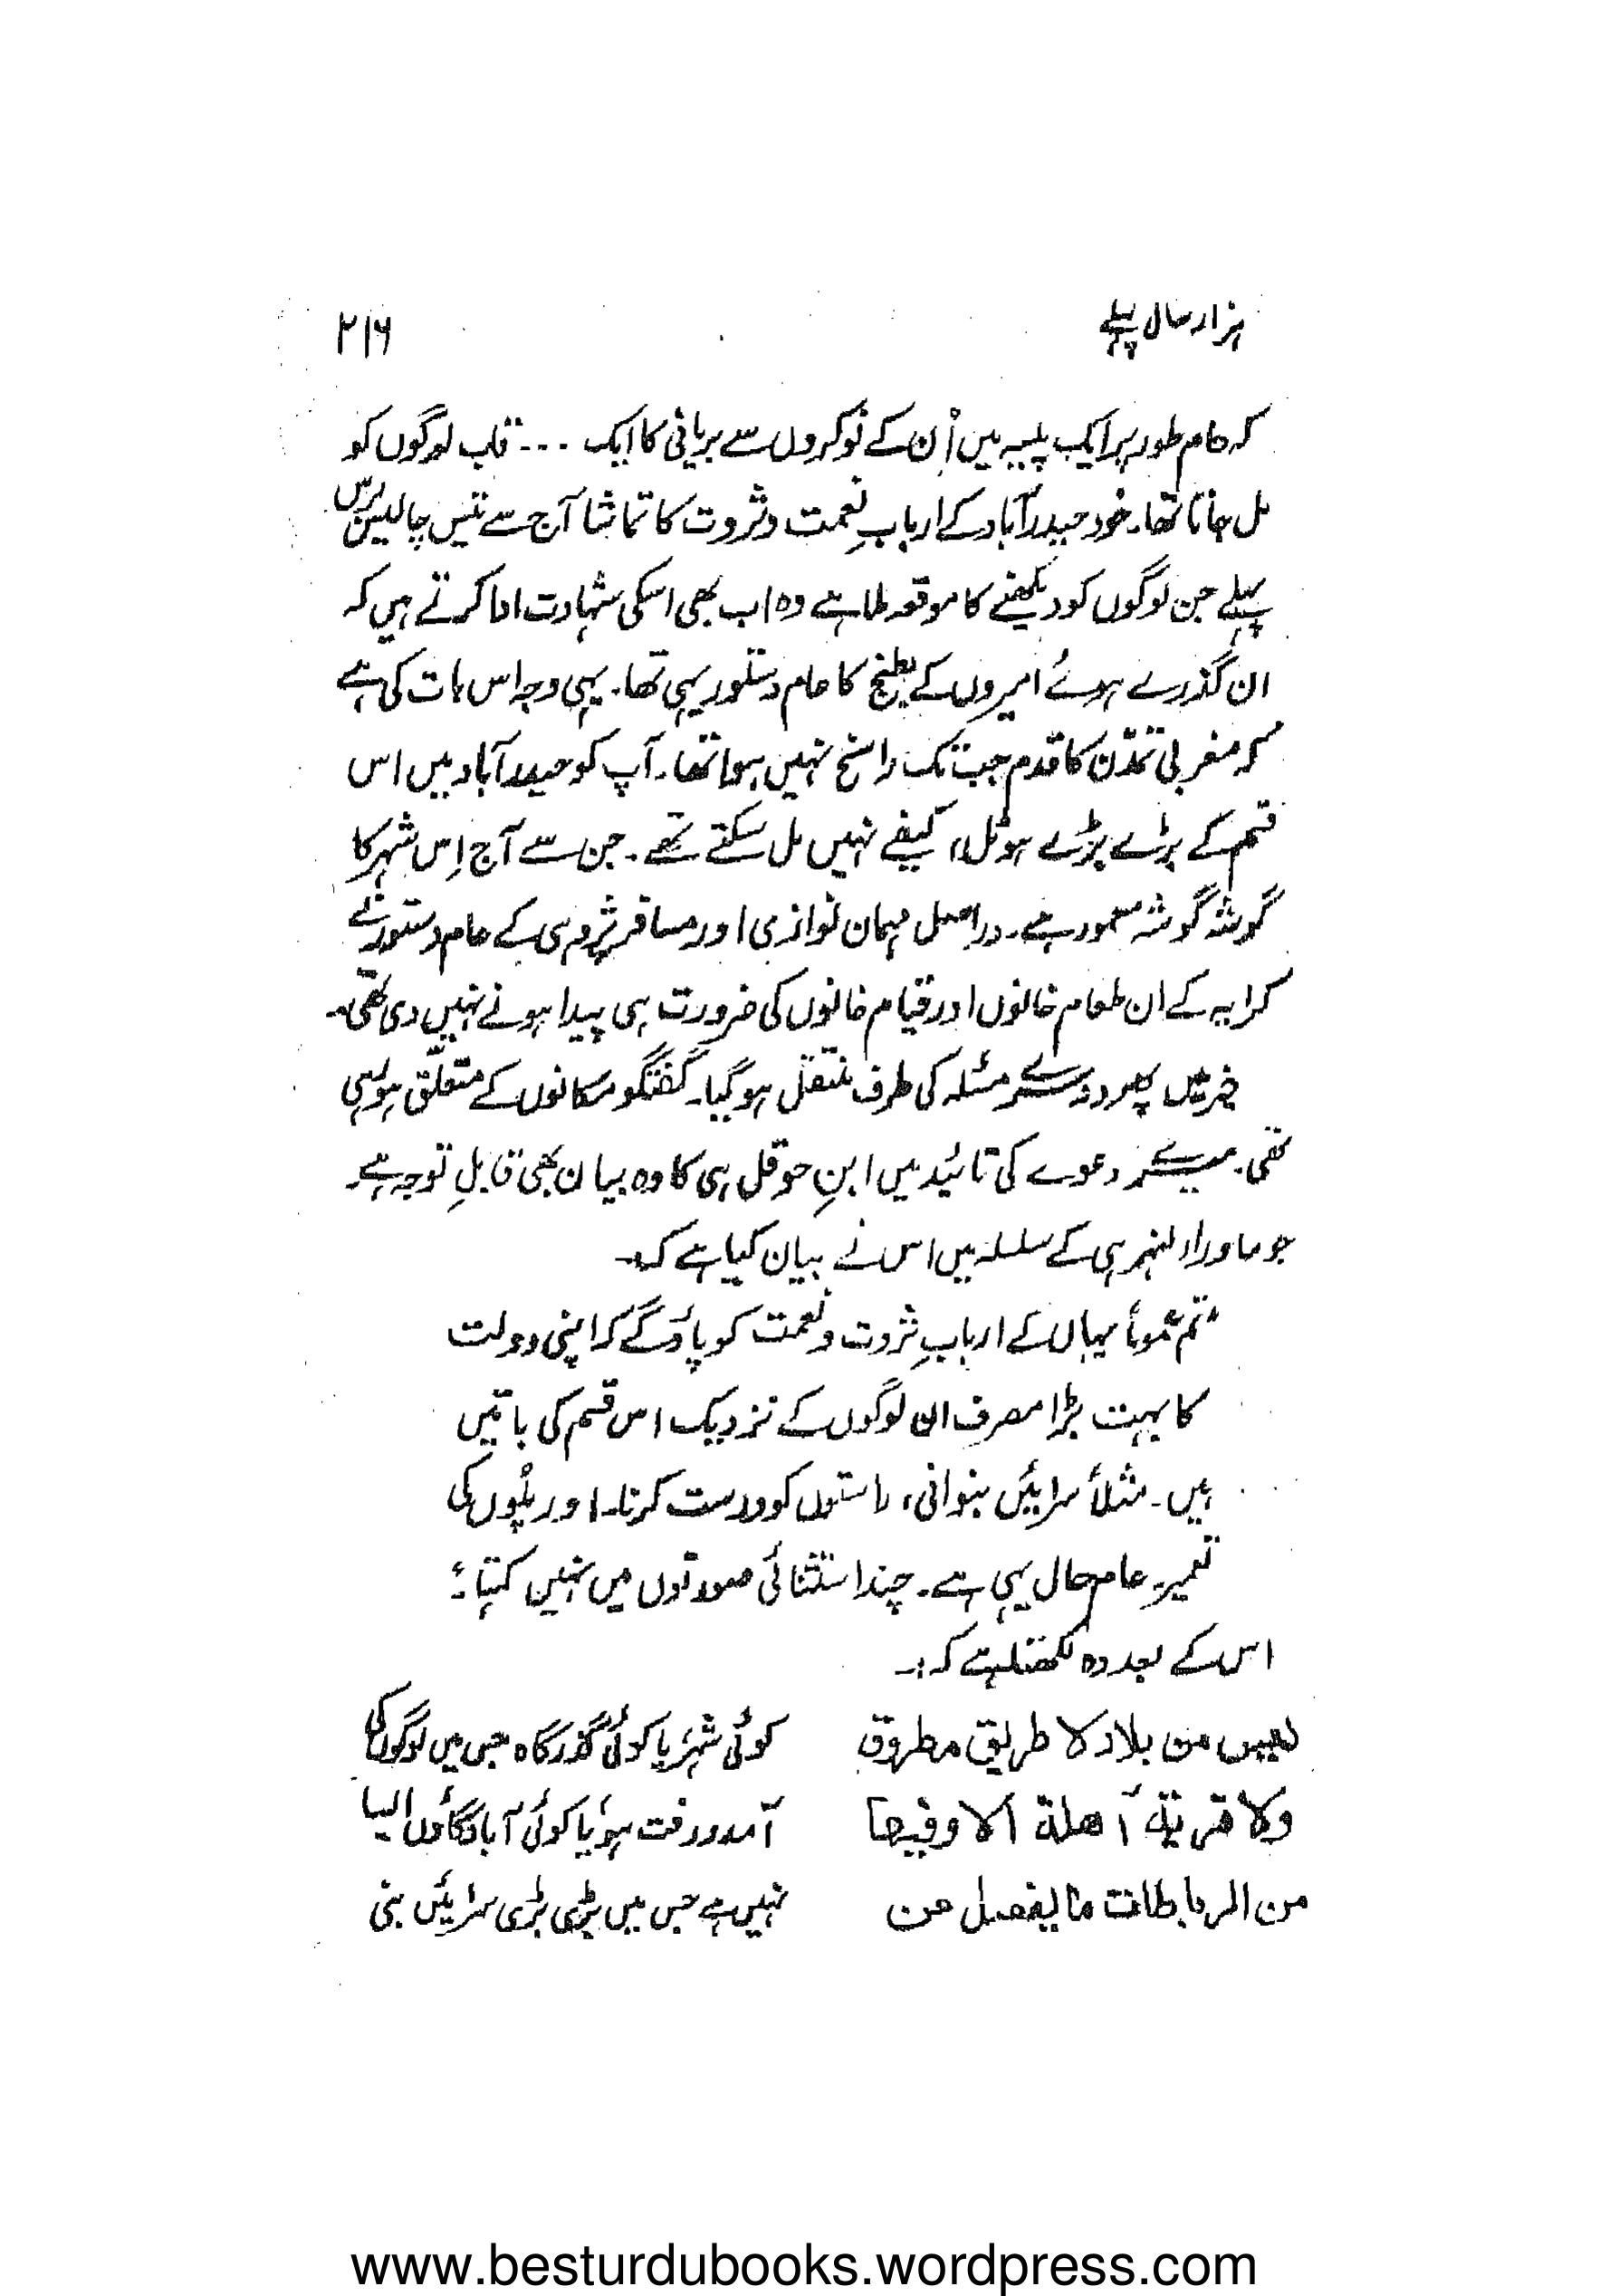 ہزار سال پہلے ۲۱۶
کہ عام طور پر ایک پیسہ میں اُن کے نوکروں سے بریانی کا ایک ... قاب لوگوں کو
مل جاتا تھا۔ خود حیدرآباد کے اربابِ نعمت وثروت کا تماشا آج سے تیس چالیس برس
پہلے جن لوگوں کو دیکھنے کا موقعہ ملا ہے وہ اب بھی اسکی شہادت ادا کرتے ہیں کہ
ان گذرے ہوئے امیروں کے مطبخ کا عام دستور یہی تھا۔ یہی وجہ اس بات کی ہے
کہ مغربی تمدّن کا قدم جب تک راسخ نہیں ہوا تھا۔ آپ کو حیدرآباد میں اس
قسم کے بڑے بڑے ہوٹل، کیفے نہیں مل سکتے تھے۔ جن سے آج اِس شہر کا
گوشہ گوشہ معمور ہے۔ دراصل مہمان نوازی اور مسافر پژوہی کے عام دستور نے
کرایہ کے ان طعام خانوں اور قیام خانوں کی ضرورت ہی پیدا ہونے نہیں دی تھی۔
خیر میں پھر دوسرے مسئلہ کی طرف منتقل ہو گیا۔ گفتگو مکانوں کے متعلّق ہو رہی
تھی۔ میرے دعوے کی تائید میں ابنِ حوقل ہی کا وہ بیان بھی قابلِ توجہ ہے۔
جو ماوراء النہر ہی کے سلسلہ میں اس نے بیان کیا ہے کہ۔
"تم عموماً یہاں کے اربابِ ثروت ونعمت کو پاؤگے کہ اپنی دولت
کا بہت بڑا مصرف ان لوگوں کے نزدیک اس قسم کی باتیں
ہیں۔ مثلاً سرائیں بنوانی، راستوں کو درست کرنا۔ اور پلوں کی
تعمیر۔ عام حال یہی ہے۔ چند استثنائی صورتوں میں نہیں کہتا"
اس کے بعد وہ لکھتا ہے کہ:۔
لیس من بلاد لا طریق مطروق
ولا قریة آھلة الا وفیھا
من الرباطات ما یفضل عن
کوئی شہر یا کوئی گذرگاہ جس میں لوگوں کی
آمدورفت ہو یا کوئی آباد گاؤں ایسا
نہیں ہے جس میں بڑی بڑی سرائیں بنی
www.besturdubooks.wordpress.com